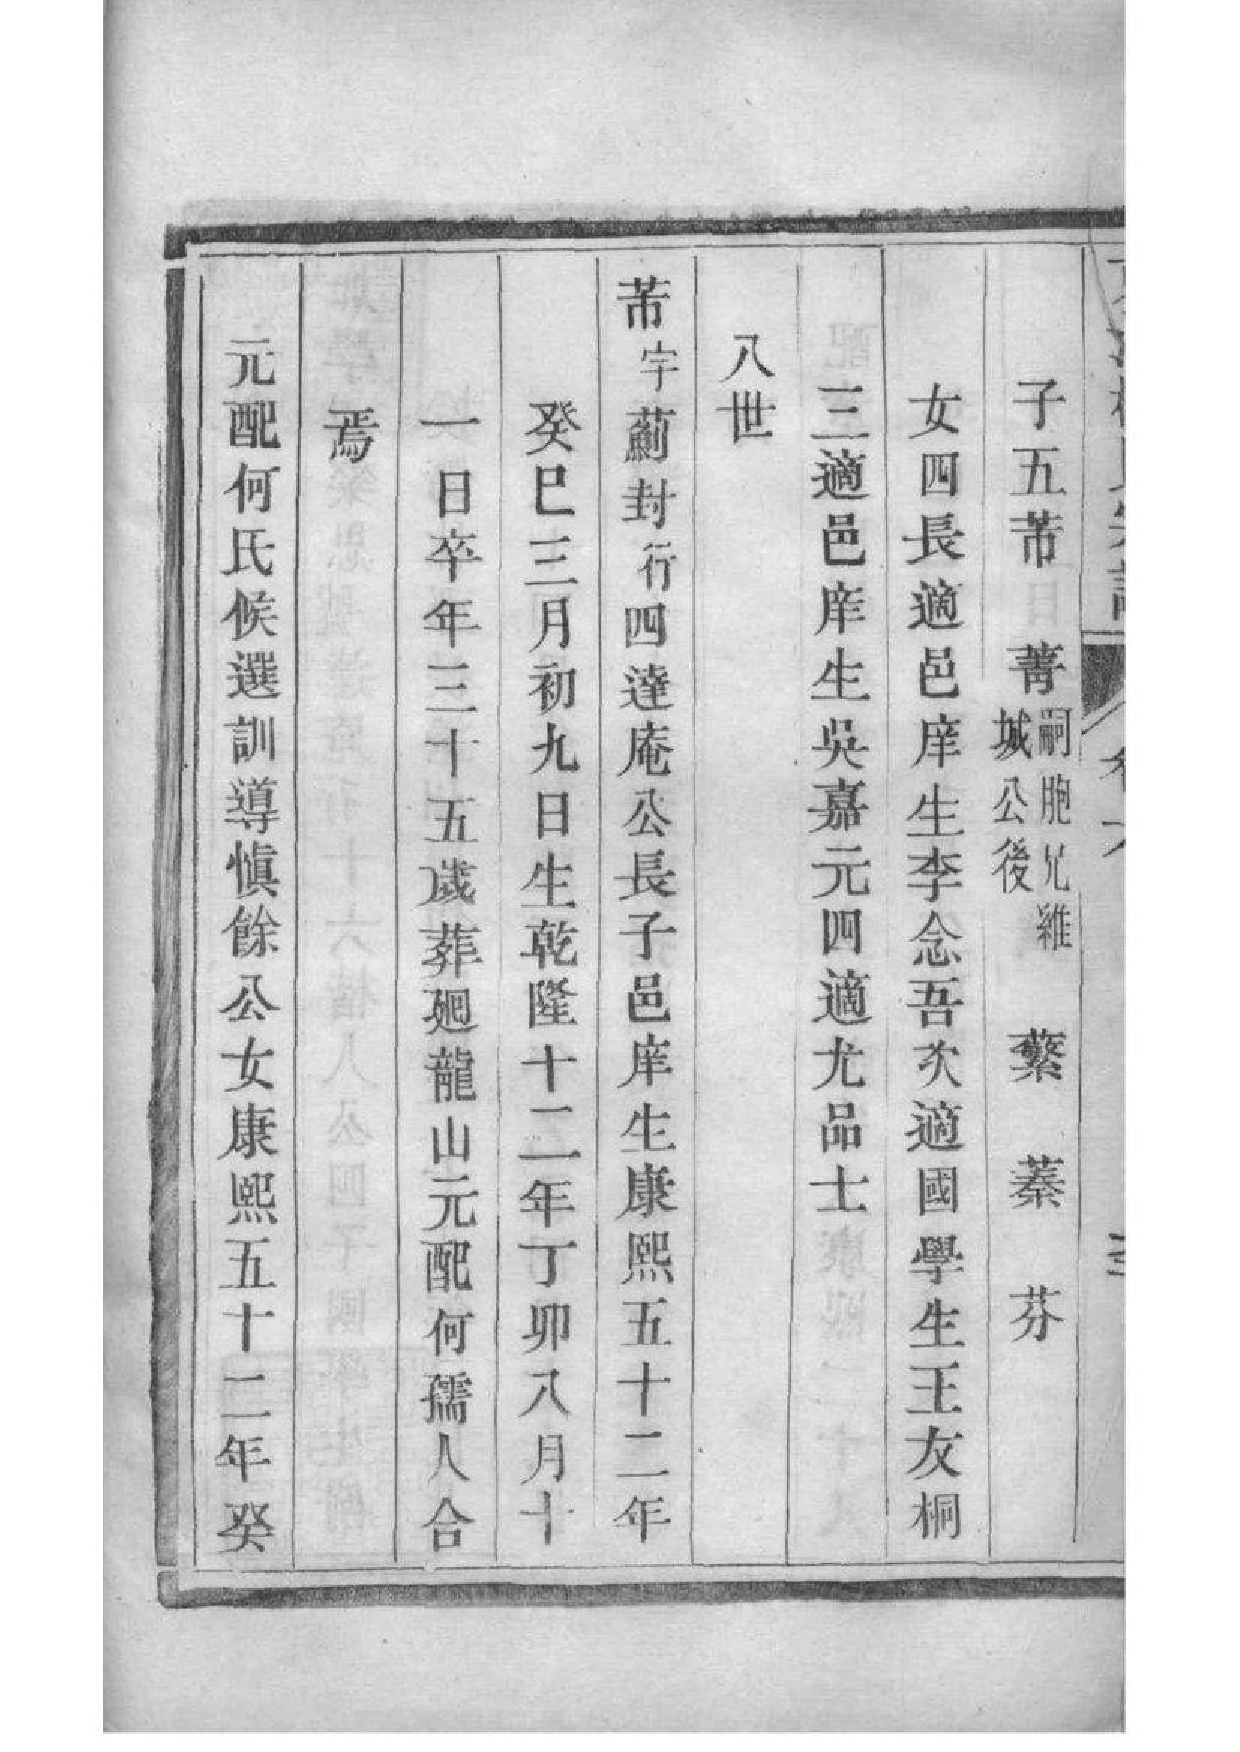 子五芾 菁嗣胞兄雒城公後 蘩 蓁 芬
女四長適邑庠生李念吾次適國學生王友桐
三適邑庠生吳嘉元四適尤品士
八世
芾字薊封行四達庵公長子邑庠生康熙五十二年
癸巳三月初九日生乾隆十二年丁卯八月十
一日卒年三十五歲葬廻龍山元配何孺人合
焉
元配何氏候選訓導愼餘公女康熙五十二年癸